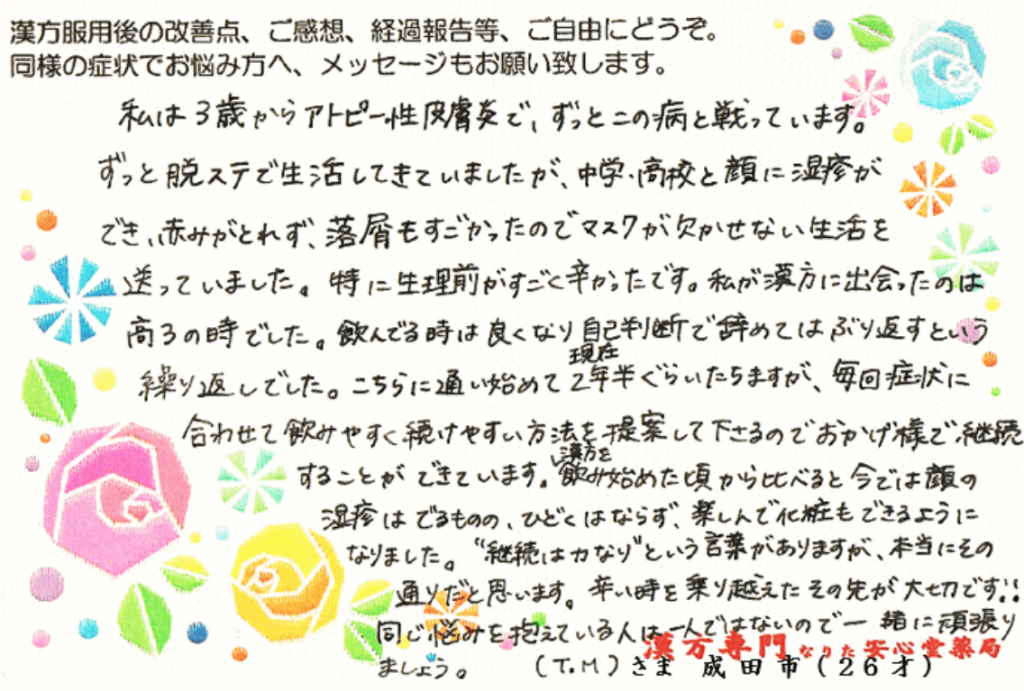 漢方服用後の改善点、ご感想、経過報告等、ご自由にどうぞ。
同様の症状でお悩み方へ、メッセージもお願い致します。
私は3歳からアトピー性皮膚炎で、ずっとこの病と戦っています。
ずっと脱ステで生活してきていましたが、中学・高校と顔に湿疹が
でき、赤みがとれず、落屑もすごかったのでマスクが欠かせない生活を
送っていました。特に生理前がすごく辛かったです。私が漢方に出会ったのは
高3の時でした。飲んでる時は良くなり自己判断で辞めてはぶり返すという
繰り返しでした。こちらに通い始めて現在2年半ぐらいたちますが、毎回症状に
合わせて飲みやすく続けやすい方法を提案して下さるのでおかげ様で継続
することができています。漢方を飲み始めた頃から比べると今では顔の
湿疹はでるものの、ひどくはならず、楽しんで化粧もできるように
なりました。"継続は力なり"という言葉がありますが、本当にその
通りだと思います。辛い時を乗り越えたその先が大切です!!
同じ悩みを抱えている人は一人ではないので一緒に頑張り
ましょう。
漢方専門 なりた安心堂薬局
(T.M)さま 成田市(26才)